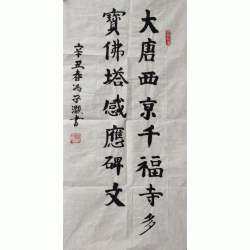 大唐西京千福寺多
寶佛塔感應碑文
辛丑春冯子灏書